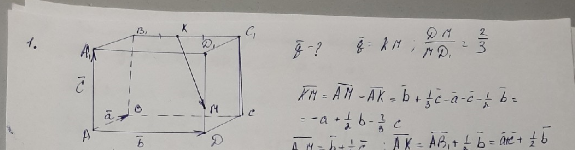 1.
B₁ K C₁
A₁ D₁
c̄
ā B M C
A b̄ D
q̄ - ? q̄ = KM ; DM/MD₁ = 2/3
KM = AM - AK = b̄ + 1/3 c̄ - ā - c̄ - 1/2 b̄ =
= -a + 1/2 b - 2/3 c
AM = b̄ + 1/3 c̄ ; AK = AB₁ + 1/2 b̄ = ā+c̄ + 1/2 b̄